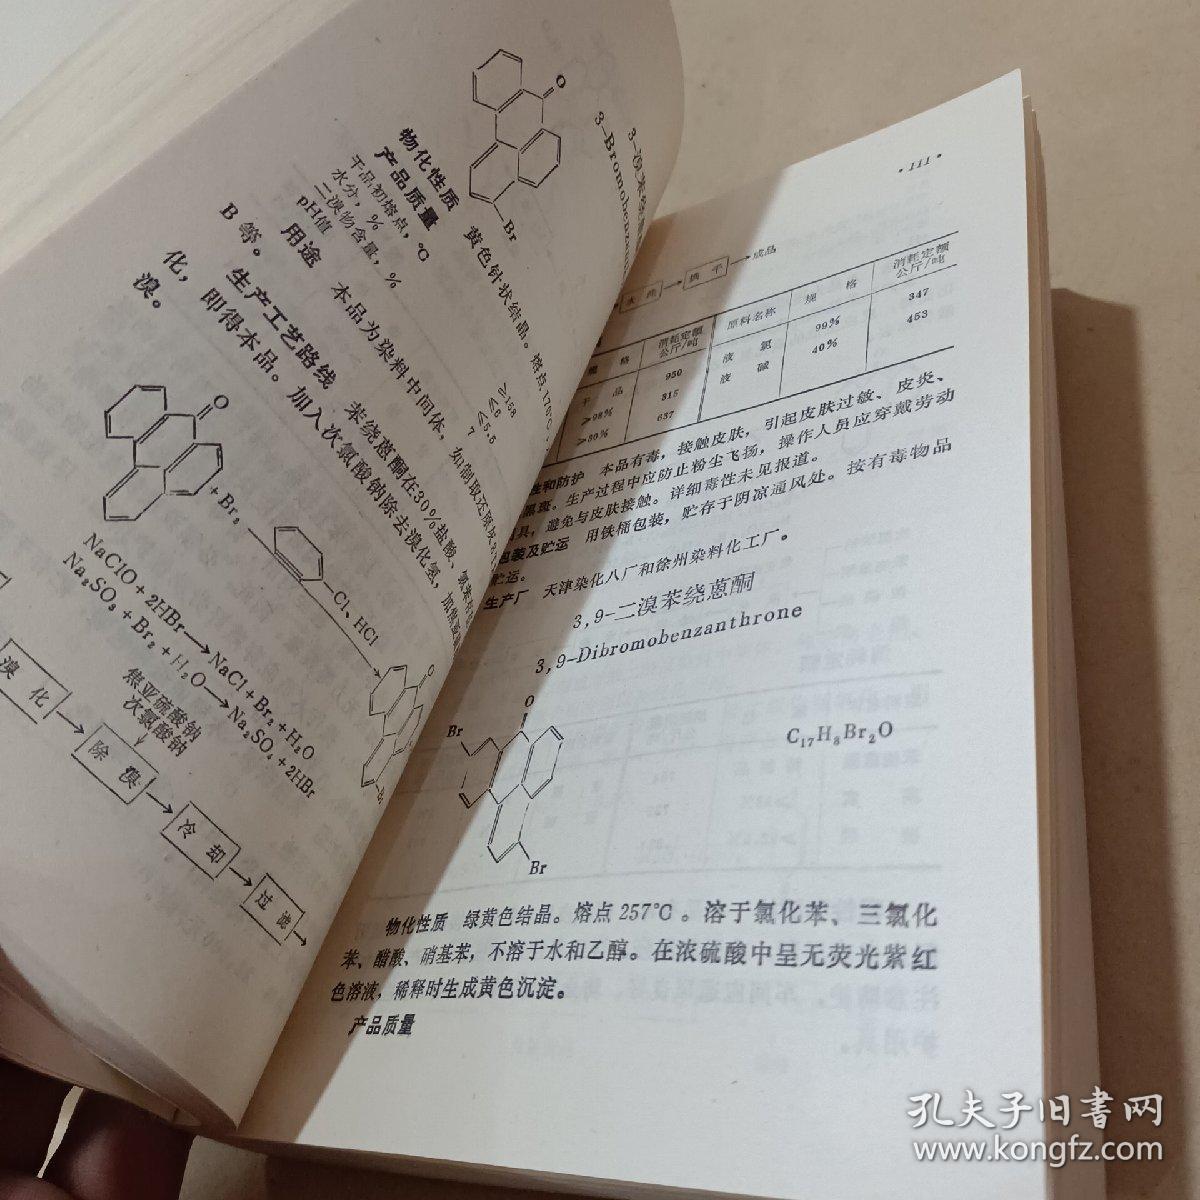 3-Bromobenzan
O
Br
物化性质 黄色针状结晶。熔点170℃
产品质量
干品初熔点，℃ ≥158
水分，% ≤6
二溴物含量，% ≤5.5
pH值 7
用途 本品为染料中间体，如制取还原
B等。
生产工艺路线 苯绕蒽酮在30%盐酸、氯苯
化，即得本品。加入次氯酸钠除去溴化氢，
溴。
O
+Br₂
Cl、HCl
O
Br
NaClO+2HBr→NaCl+Br₂+H₂O
Na₂SO₃+Br₂+H₂O→Na₂SO₄+2HBr
焦亚硫酸钠
次氯酸钠
溴化→除溴→冷却→过滤→
·111·
水洗→烘干→成品
规格 消耗定额 公斤/吨 原料名称 规格 消耗定额 公斤/吨
干品 950 液氯 99% 347
≥98% 315 液碱 40% 453
≥30% 637
性和防护 本品有毒，接触皮肤，引起皮肤过敏、皮炎、
黑斑。生产过程中应防止粉尘飞扬，操作人员应穿戴劳动
具，避免与皮肤接触。详细毒性未见报道。
包装及贮运 用铁桶包装，贮存于阴凉通风处。按有毒物品
贮运。
生产厂 天津染化八厂和徐州染料化工厂。
3,9-二溴苯绕蒽酮
3,9-Dibromobenzanthrone
O
Br
Br
C₁₇H₈Br₂O
物化性质 绿黄色结晶。熔点257℃。溶于氯化苯、三氯化
苯、醋酸、硝基苯，不溶于水和乙醇。在浓硫酸中呈无荧光紫红
色溶液，稀释时生成黄色沉淀。
产品质量
孔夫子旧书网
www.kongfz.com